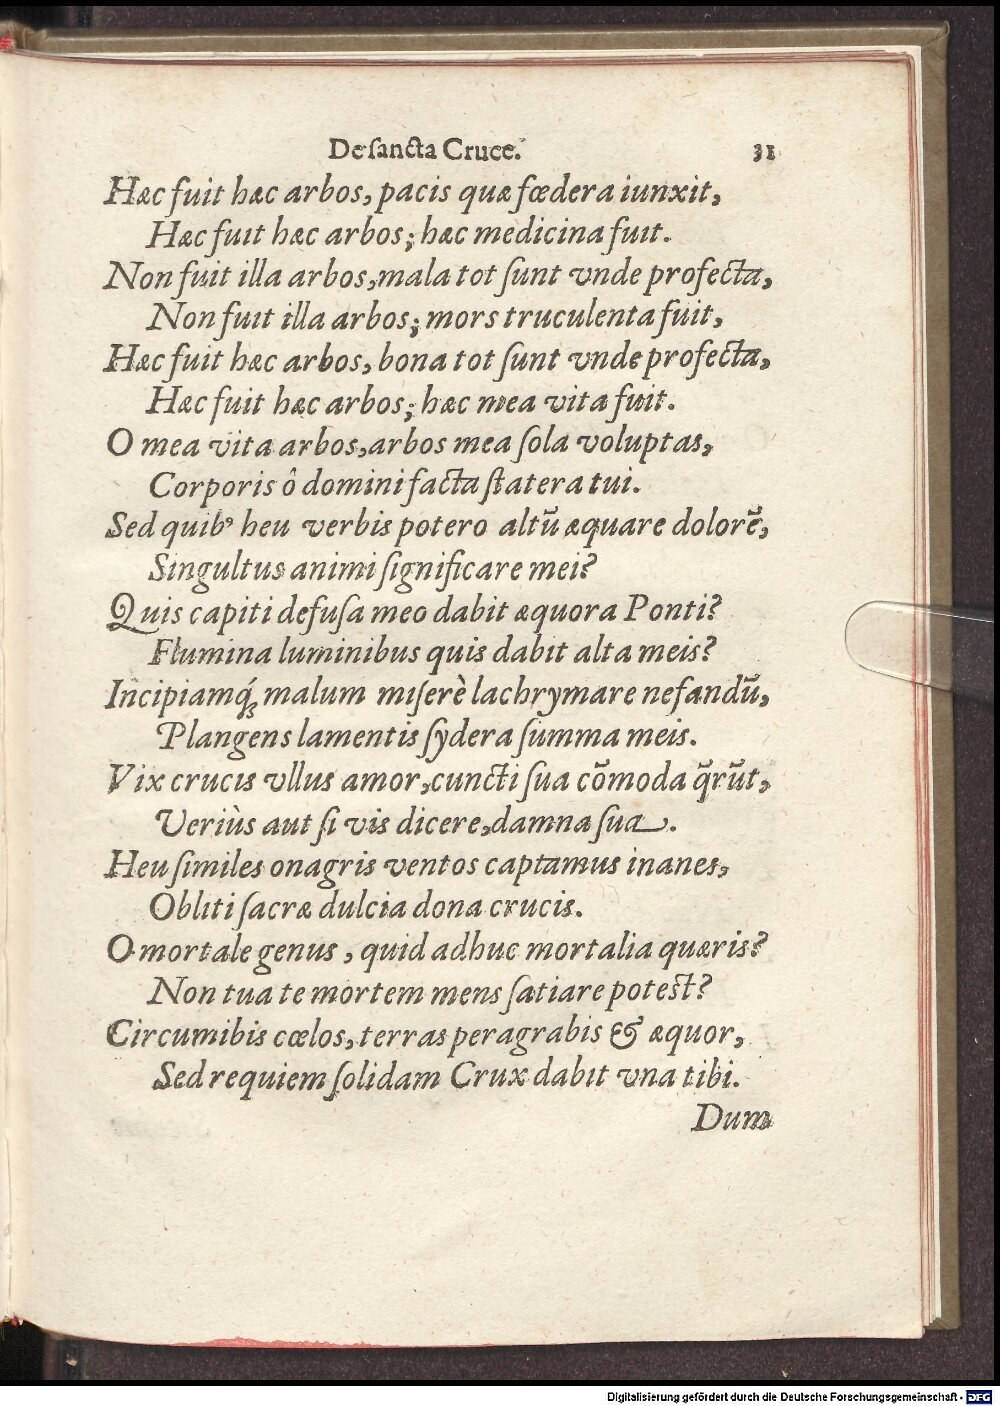 De ſancta Cruce. 31
Hæc fuit hæc arbos, pacis quæ fœdera iunxit,
Hæc fuit hæc arbos; hæc medicina fuit.
Non fuit illa arbos, mala tot ſunt vnde profecta,
Non fuit illa arbos; mors truculenta fuit,
Hæc fuit hæc arbos, bona tot ſunt vnde profecta,
Hæc fuit hæc arbos; hæc mea vita fuit.
O mea vita arbos, arbos mea ſola voluptas,
Corporis ô domini facta ſtatera tui.
Sed quibꝰ heu verbis potero altũ æquare dolorẽ,
Singultus animi ſignificare mei?
Quis capiti defuſa meo dabit æquora Ponti?
Flumina luminibus quis dabit alta meis?
Incipiamq́ꝫ malum miſerè lachrymare nefandũ,
Plangens lamentis ſydera ſumma meis.
Vix crucis vllus amor, cuncti ſua cõmoda q̃rũt,
Veriùs aut ſi vis dicere, damna ſua.
Heu ſimiles onagris ventos captamus inanes,
Obliti ſacræ dulcia dona crucis.
O mortale genus, quid adhuc mortalia quæris?
Non tua te mortem mens ſatiare poteſt?
Circumibis cœlos, terras peragrabis & æquor,
Sed requiem ſolidam Crux dabit vna tibi.
Dum
Digitalisierung gefördert durch die Deutsche Forschungsgemeinschaft - DFG